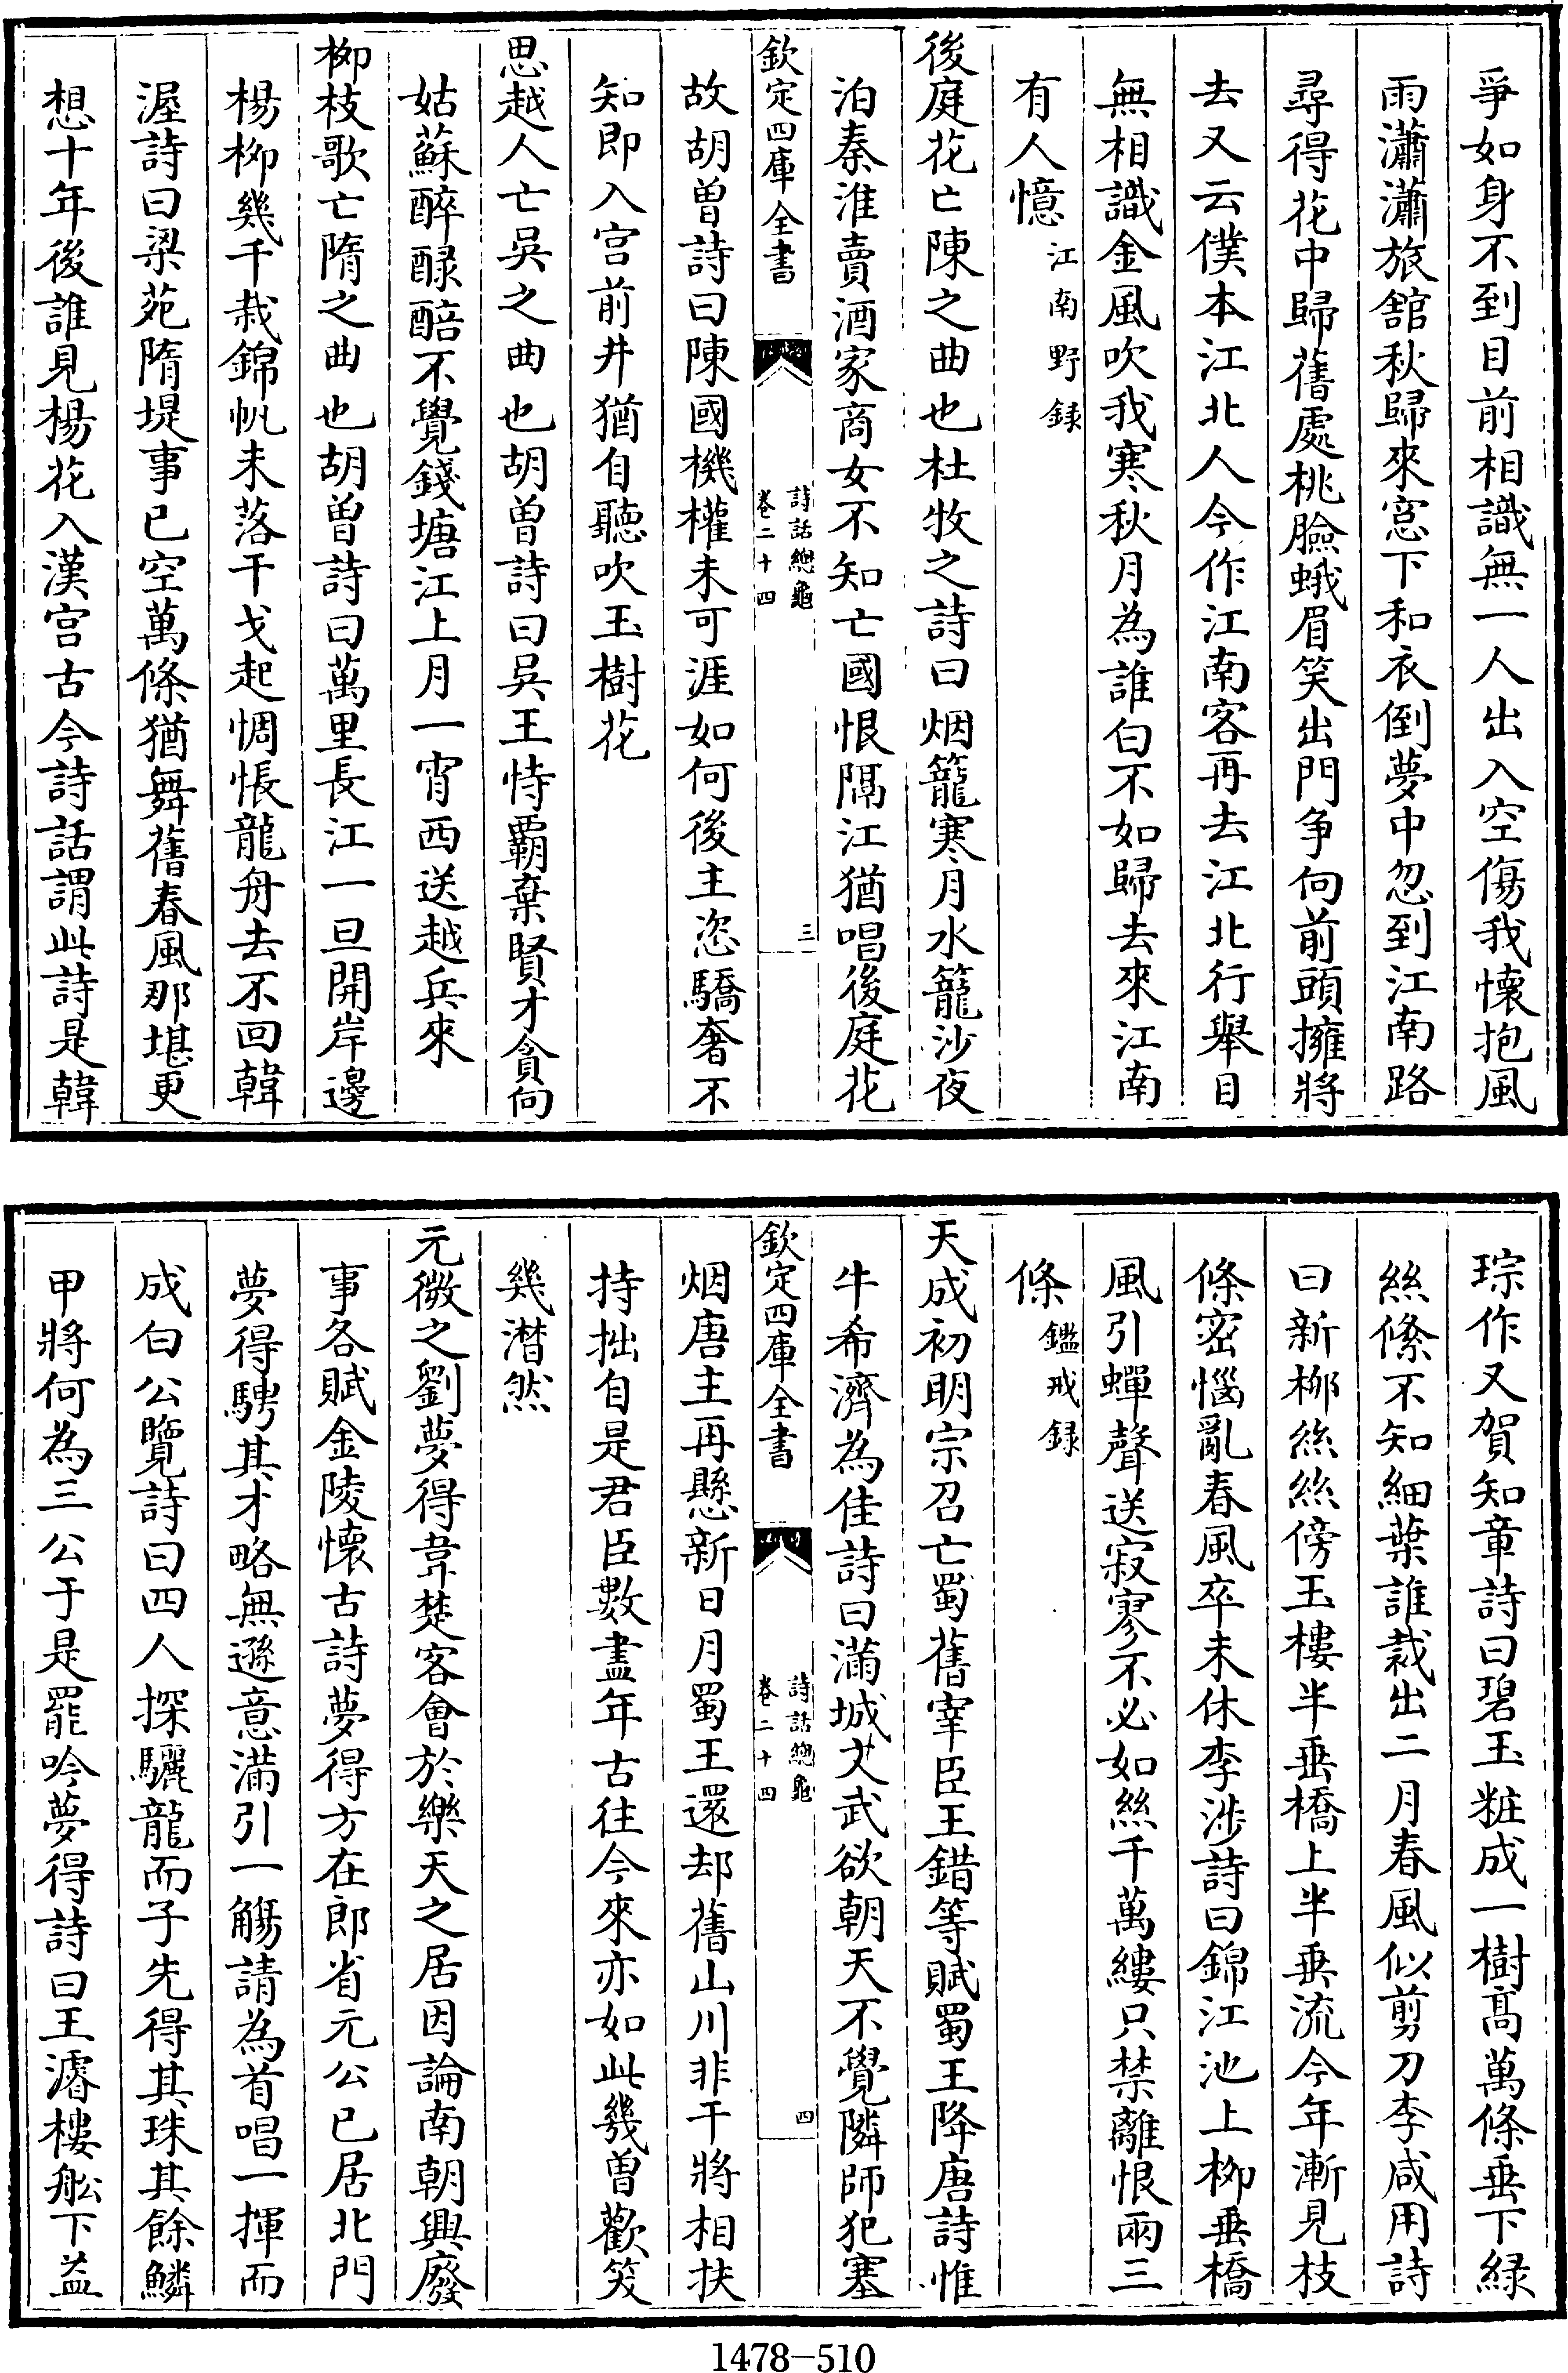 爭如身不到目前相識無一人出入空傷我懷抱風
雨瀟瀟旅舘秋歸來窓下和衣倒夢中忽到江南路
尋得花中歸舊處桃臉蛾眉笑出門争向前頭擁將
去又云僕本江北人今作江南客再去江北行舉目
無相識金風吹我寒秋月為誰白不如歸去來江南
有人憶江南野録
後庭花亡陳之曲也杜牧之詩曰烟籠寒月水籠沙夜
泊秦淮賣酒家商女不知亡國恨隔江猶唱後庭花
欽定四庫全書
詩話總龜
卷二十四
三
故胡曾詩曰陳國機權未可涯如何後主恣驕奢不
知即入宫前井猶自聽吹玉樹花
思越人亡吳之曲也胡曾詩曰吳王恃覇棄賢才貪向
姑蘇醉醁醅不覺錢塘江上月一宵西送越兵來
栁枝歌亡隋之曲也胡曾詩曰萬里長江一旦開岸邊
楊栁幾千栽錦帆未落干戈起惆悵龍舟去不回韓
渥詩曰梁苑隋堤事已空萬條猶舞舊春風那堪更
想十年後誰見楊花入漢宫古今詩話謂此詩是韓
琮作又賀知章詩曰碧玉粧成一樹髙萬條垂下緑
絲絛不知細葉誰裁出二月春風似剪刀李咸用詩
曰新栁絲絲傍玉樓半垂橋上半垂流今年漸見枝
條密惱亂春風卒未休李涉詩曰錦江池上栁垂橋
風引蟬聲送寂寥不必如絲千萬縷只禁離恨兩三
條鑑戒録
天成初明宗召亡蜀舊宰臣王錯等賦蜀王降唐詩惟
牛希濟為佳詩曰滿城文武欲朝天不覺隣師犯塞
欽定四庫全書
詩話總龜
卷二十四
四
烟唐主再懸新日月蜀王還却舊山川非干將相扶
持拙自是君臣數盡年古往今來亦如此幾曾歡笑
幾潸然
元微之劉夢得韋楚客會於樂天之居因論南朝興廢
事各賦金陵懷古詩夢得方在郎省元公已居北門
夢得騁其才略無遜意滿引一觴請為首唱一揮而
成白公覽詩曰四人探驪龍而子先得其珠其餘鱗
甲將何為三公于是罷吟夢得詩曰王濬樓舩下益
1478-510